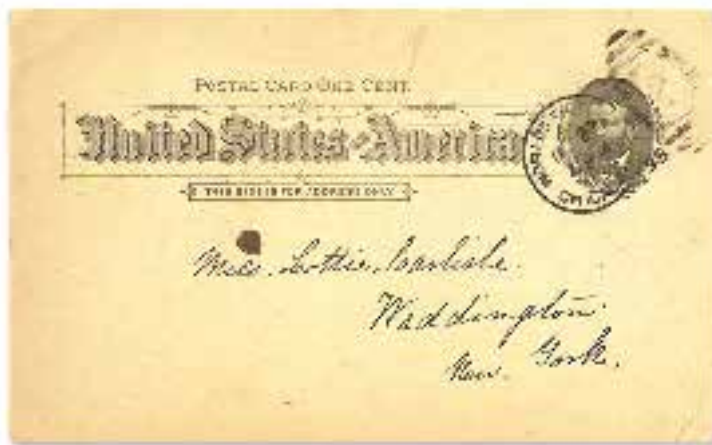 POSTAL CARD ONE CENT.
United States of America
THIS SIDE IS FOR ADDRESS ONLY
Miss. Lottie Carlisle.
Waddington.
New. York.